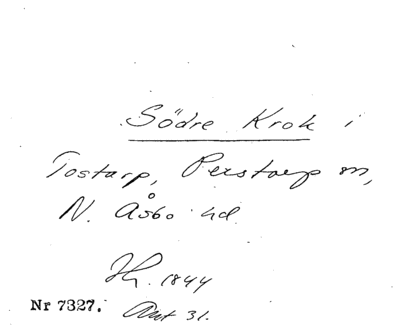 Södre Krok i
Tostarp, Perstorp sn,
N. Åsbo hd.
Hf. 1844
Nr 7327. Akt 31.